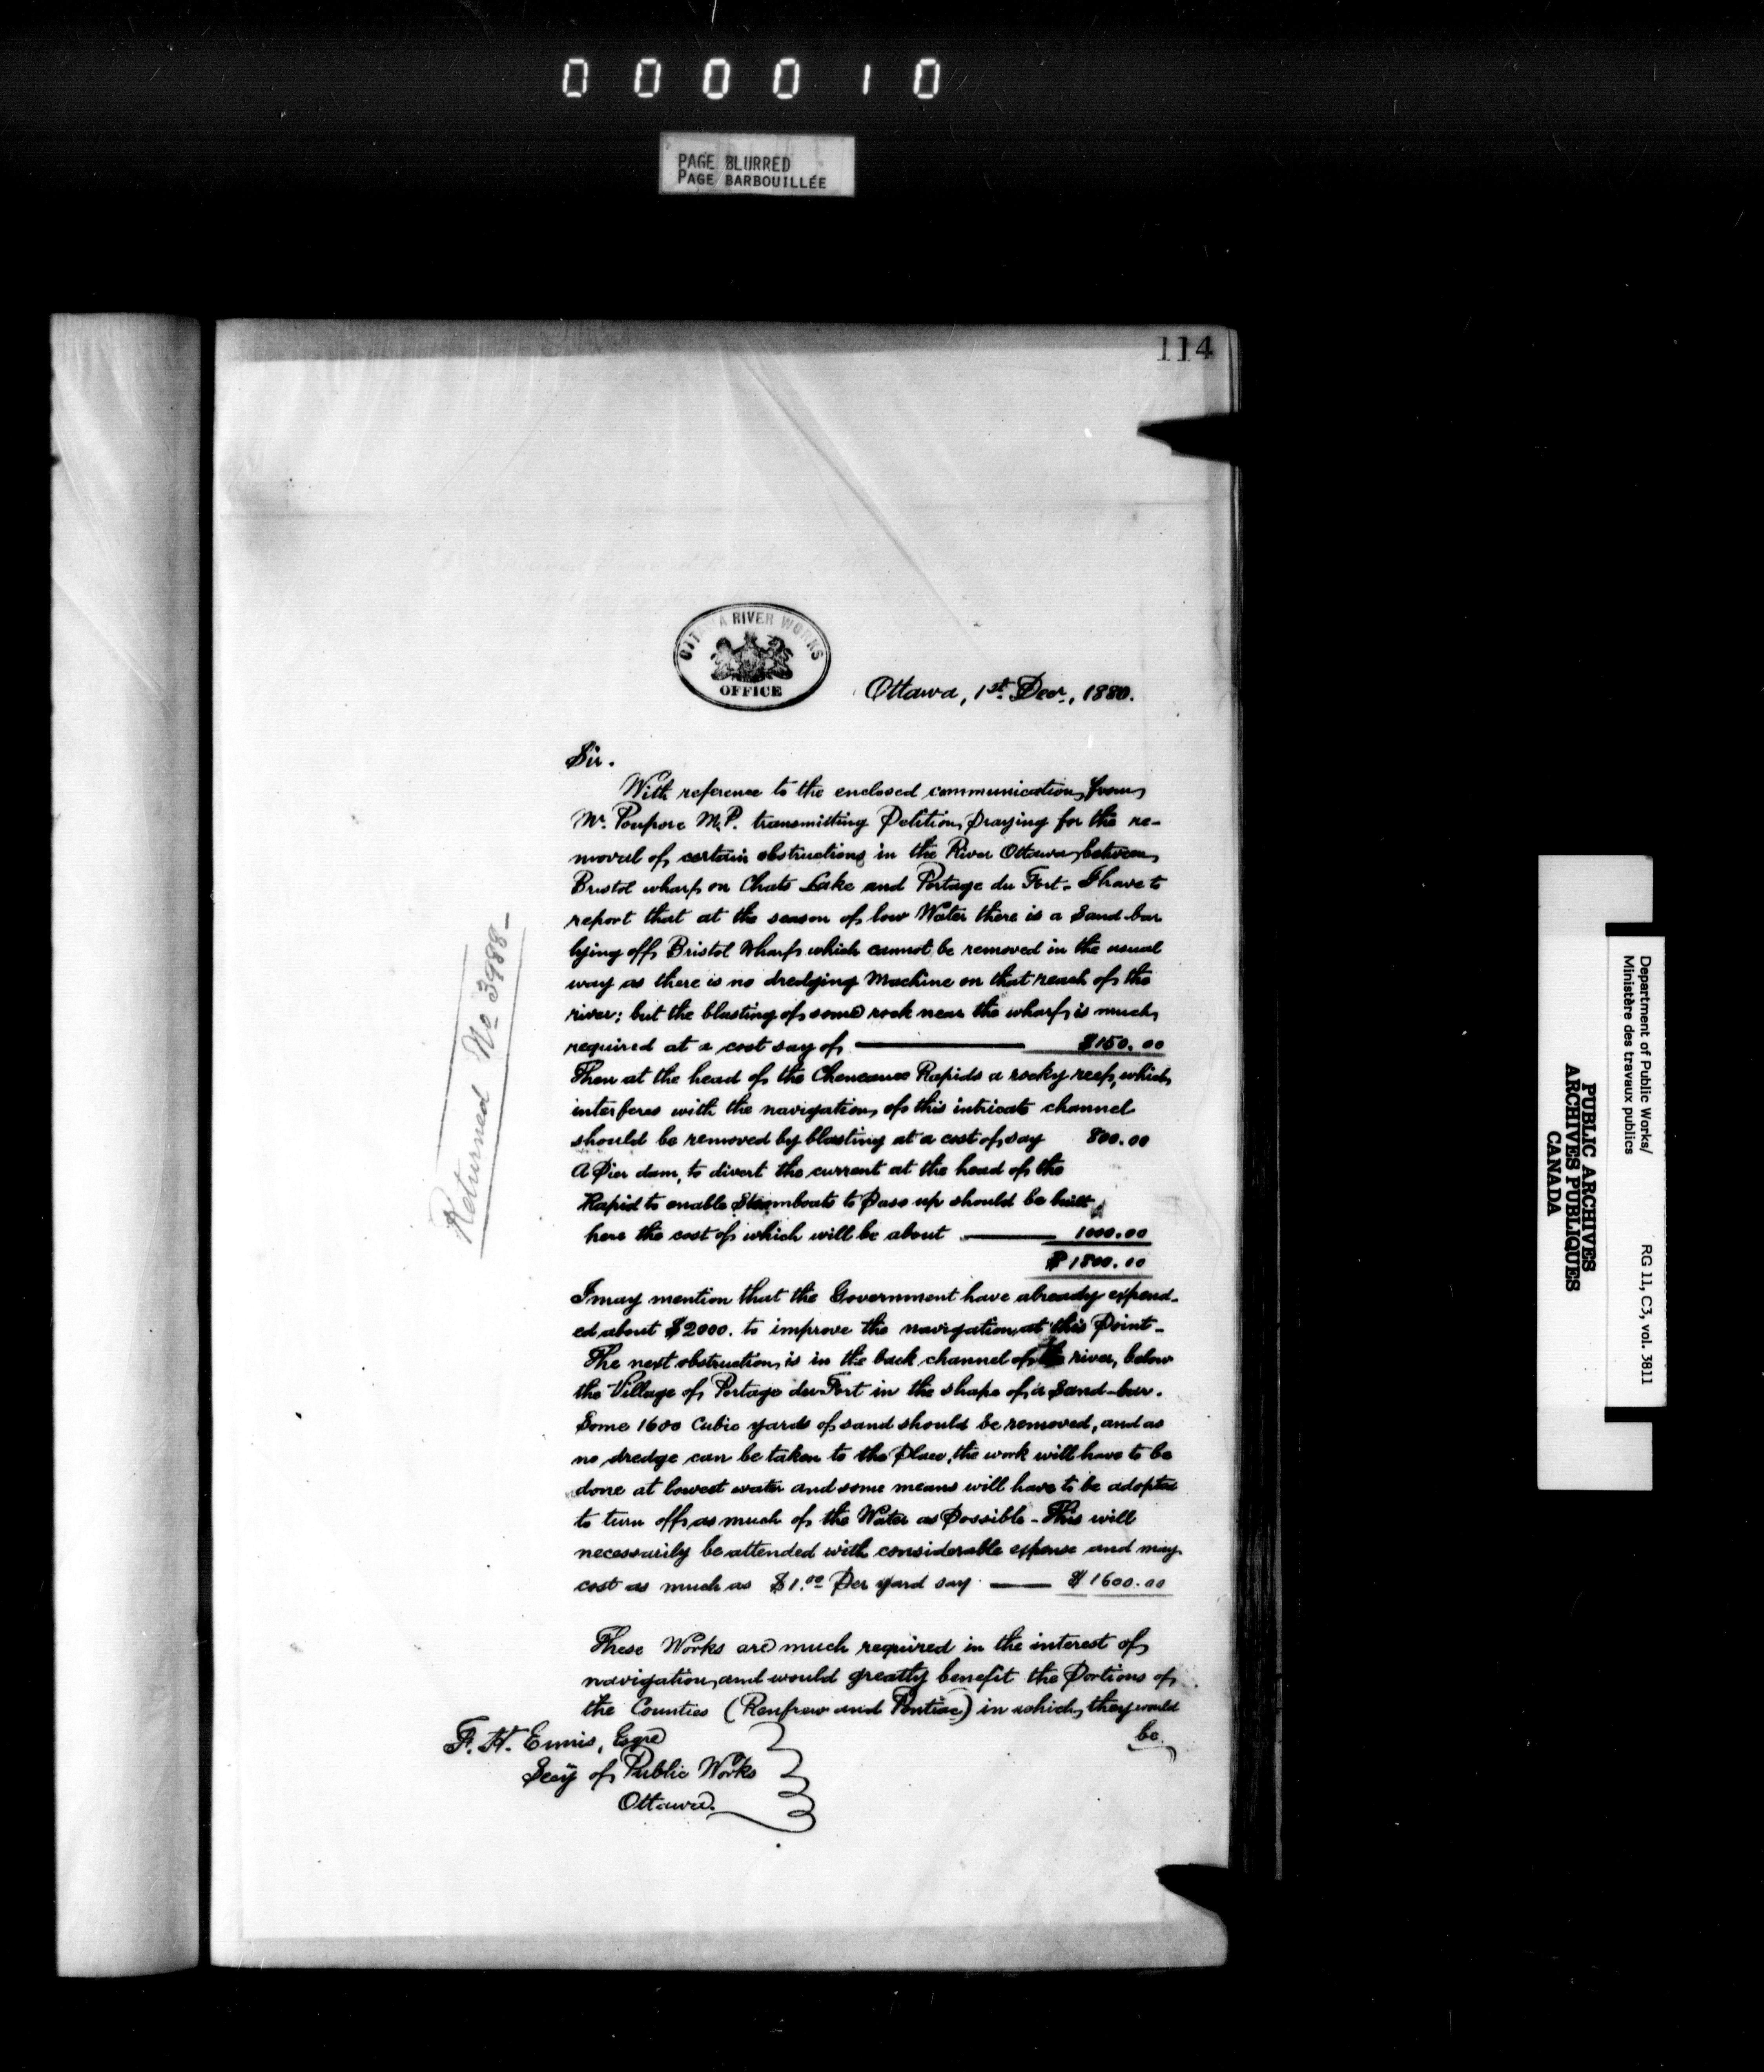 000010
PAGE BLURRED
PAGE BARBOUILLÉE
114
OTTAWA RIVER WORKS
OFFICE
Ottawa, 1st. Decr., 1880.
Sir.
With reference to the enclosed communication from
Mr. Poupore M.P. transmitting Petition Praying for the re-
moval of certain obstructions in the River Ottawa between
Bristol wharf on Chats Lake and Portage du Fort. I have to
report that at the season of low Water there is a Sand-bar
lying off Bristol Wharf which cannot be removed in the usual
way as there is no dredging Machine on that reach of the
river; but the blasting of some rock near the wharf is much
required at a cost say of — $150.00
Then at the head of the Cheneaux Rapids a rocky reef, which
interferes with the navigation of this intricate channel
should be removed by blasting at a cost of say 800.00
A Pier dam, to divert the current at the head of the
Rapid to enable Steamboats to Pass up should be built
here the cost of which will be about — 1000.00
$1800.00
I may mention that the Government have already expend-
ed about $2000. to improve the navigation at this Point-
The next obstruction is in the back channel of the river, below
the Village of Portage du Fort in the shape of a Sand-bar.
Some 1600 Cubic yards of sand should be removed, and as
no dredge can be taken to the Place, the work will have to be
done at lowest water and some means will have to be adopted
to turn off as much of the Water as Possible - This will
necessarily be attended with considerable expense and may
cost as much as $1.00 Per yard say — $1600.00
These Works are much required in the interest of
navigation, and would greatly benefit the Portions of
the Counties (Renfrew and Pontiac) in which they would
be
F. H. Ennis, Esqre
Secy of Public Works
Ottawa.
Returned No 3988-
Department of Public Works/
Ministère des travaux publics
RG 11, C3, vol. 3811
PUBLIC ARCHIVES
ARCHIVES PUBLIQUES
CANADA